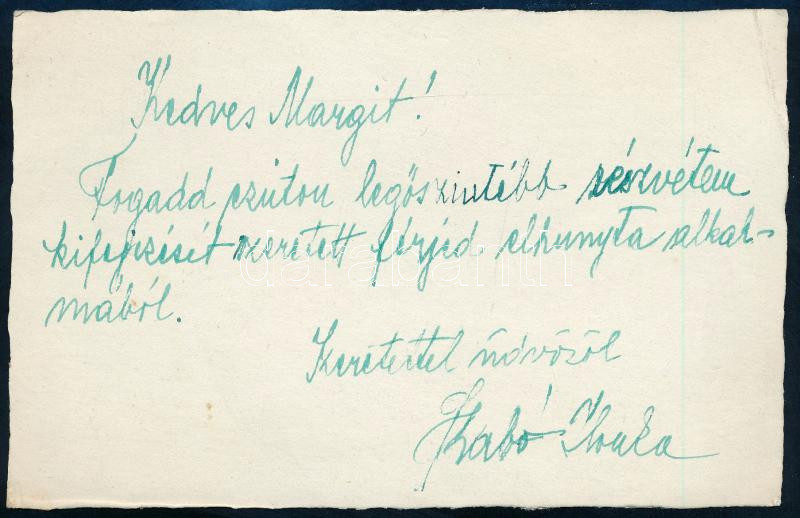 Kedves Margit!
Fogadd ezúton legőszintébb részvétem
kifejezését szeretett férjed elhunyta alkal-
mából.
Szeretettel üdvözöl
Szabó Ilonka
darabanth